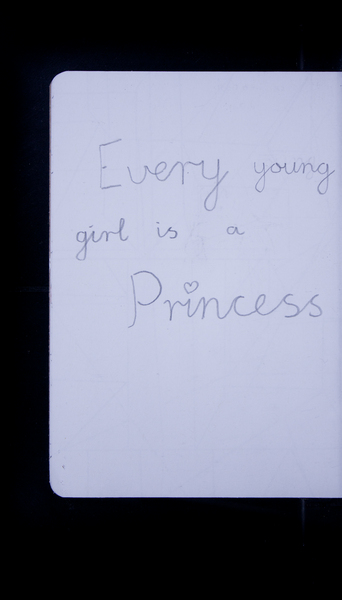 Every young
girl is a
Princess